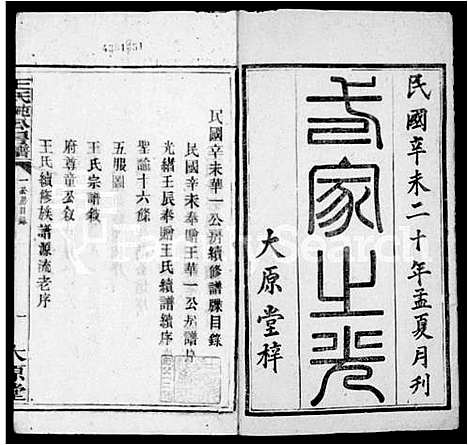 民國辛未二十年孟夏月刊
家之光
大原堂梓
4281851
民國辛未華一公房續修譜牒目錄
民國辛未奉贈王華一公房續譜序
光緒壬辰奉贈王氏續譜序
聖諭十六條
五服圖
王氏宗譜敘
府尊童公敘
王氏續修族譜源流老序
一公房目錄
一
大原堂